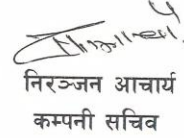 निरञ्जन आचार्य
कम्पनी सचिव